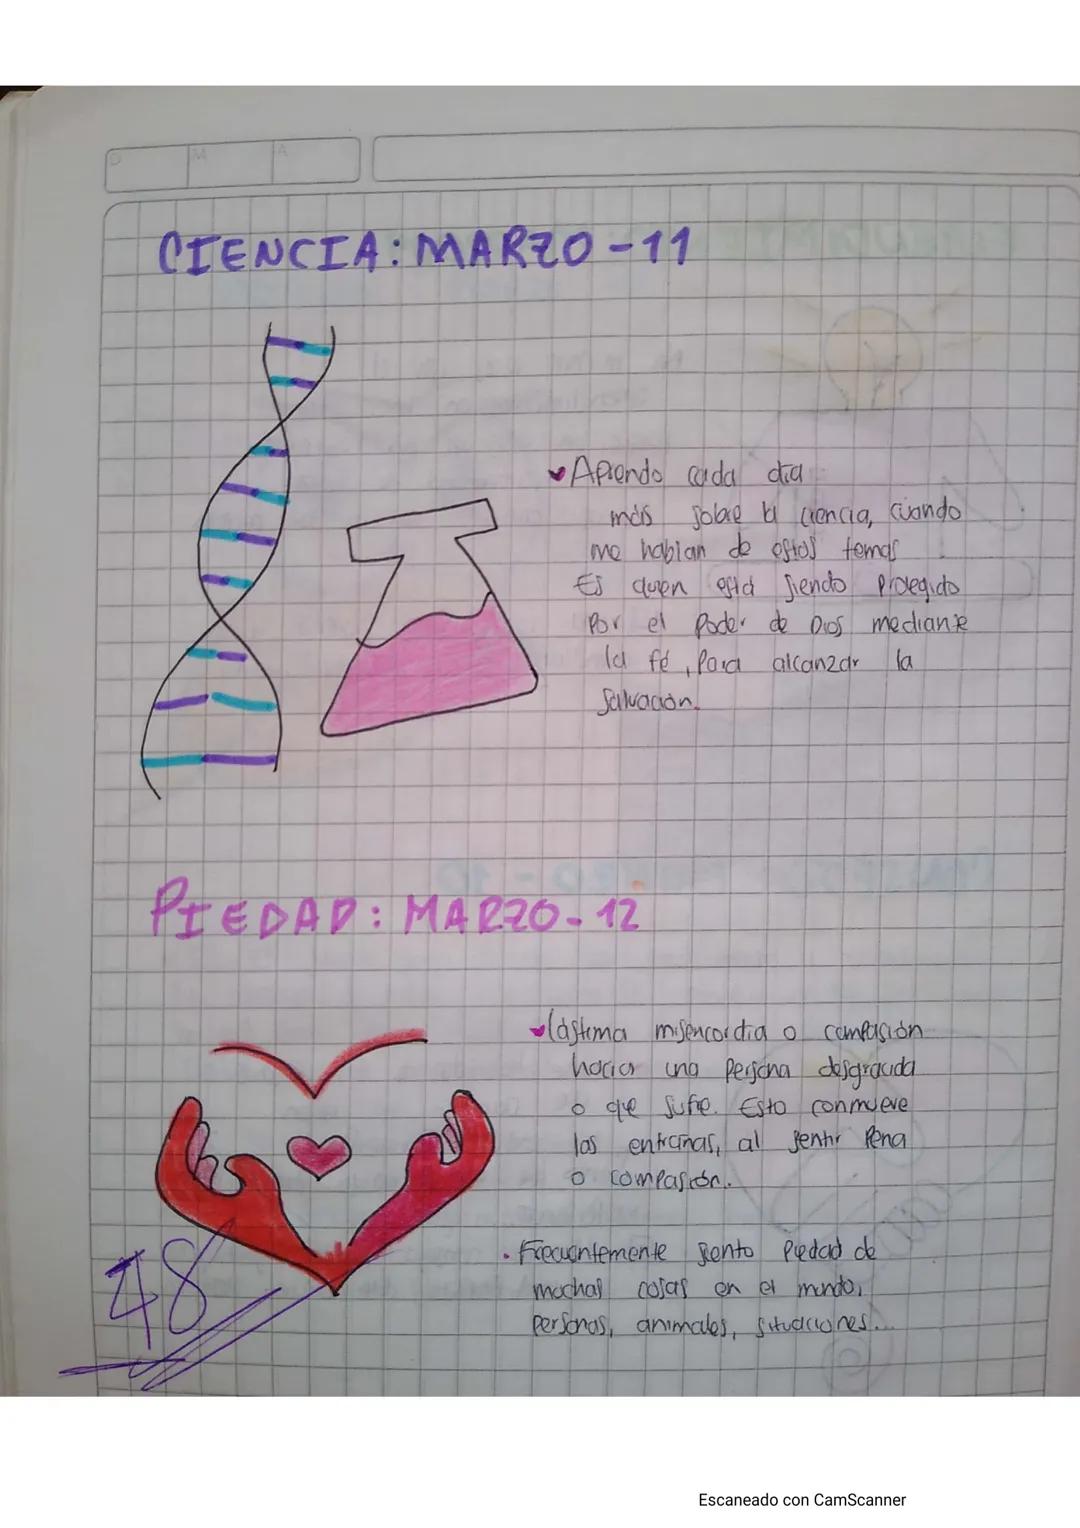 D M A
CIENCIA: MARZO - 11
Aprendo cada dia
más sobre la ciencia, cuando
me hablan de estos temas
Es quien está siendo protegido
Por el poder de Dios mediante
la fé, Para alcanzar la
salvación.
PIEDAD: MARZO - 12
lástima misericordia o compasión
hacia una persona desgraciada
o que sufre. Esto conmueve
las entrañas, al sentir Pena
o compasión.
· Frecuentemente siento Piedad de
muchas cosas en el mundo,
personas, animales, situaciones...
48
Escaneado con CamScanner